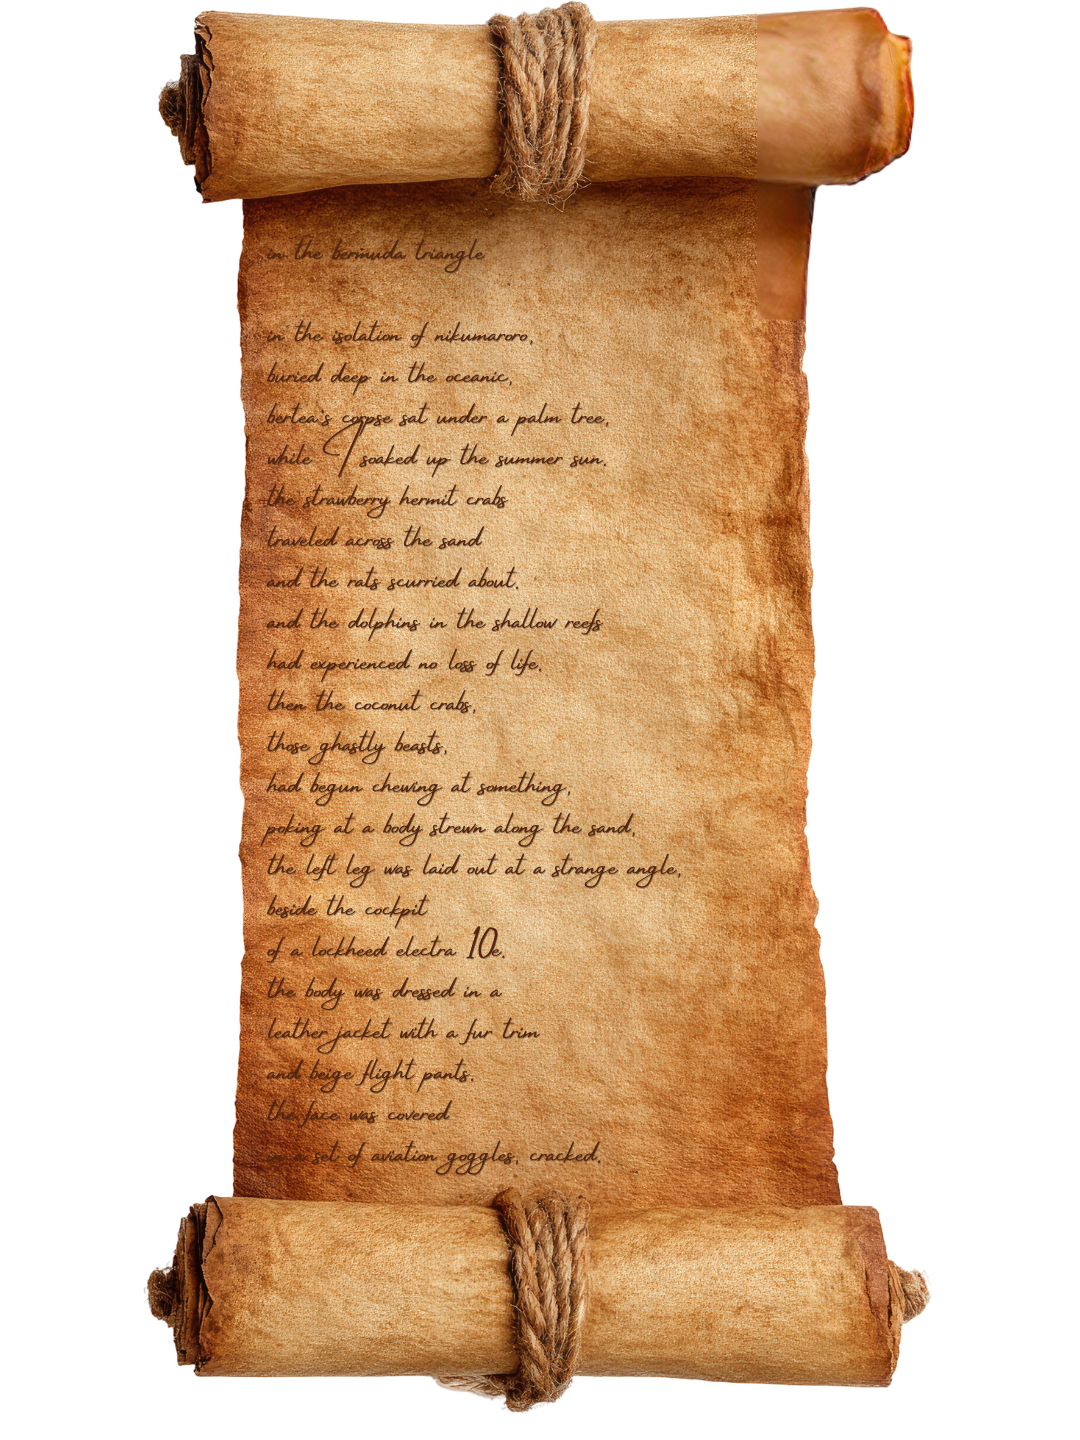 in the bermuda triangle
in the isolation of nikumaroro,
buried deep in the oceanic,
bertea's corpse sat under a palm tree,
while I soaked up the summer sun.
the strawberry hermit crabs
traveled across the sand
and the rats scurried about.
and the dolphins in the shallow reefs
had experienced no loss of life.
then the coconut crabs,
those ghastly beasts,
had begun chewing at something,
poking at a body strewn along the sand,
the left leg was laid out at a strange angle,
beside the cockpit
of a lockheed electra 10e.
the body was dressed in a
leather jacket with a fur trim
and beige flight pants.
the face was covered
in a set of aviation goggles, cracked.